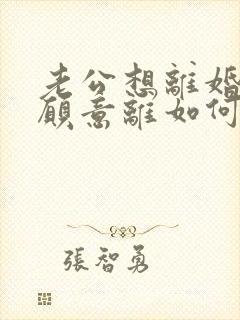 老公想離婚
願意離如何
張智勇